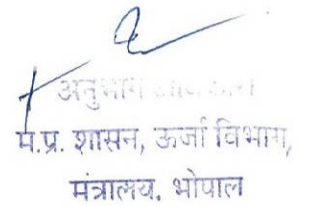 अनुभाग
म.प्र. शासन, ऊर्जा विभाग,
मंत्रालय. भोपाल